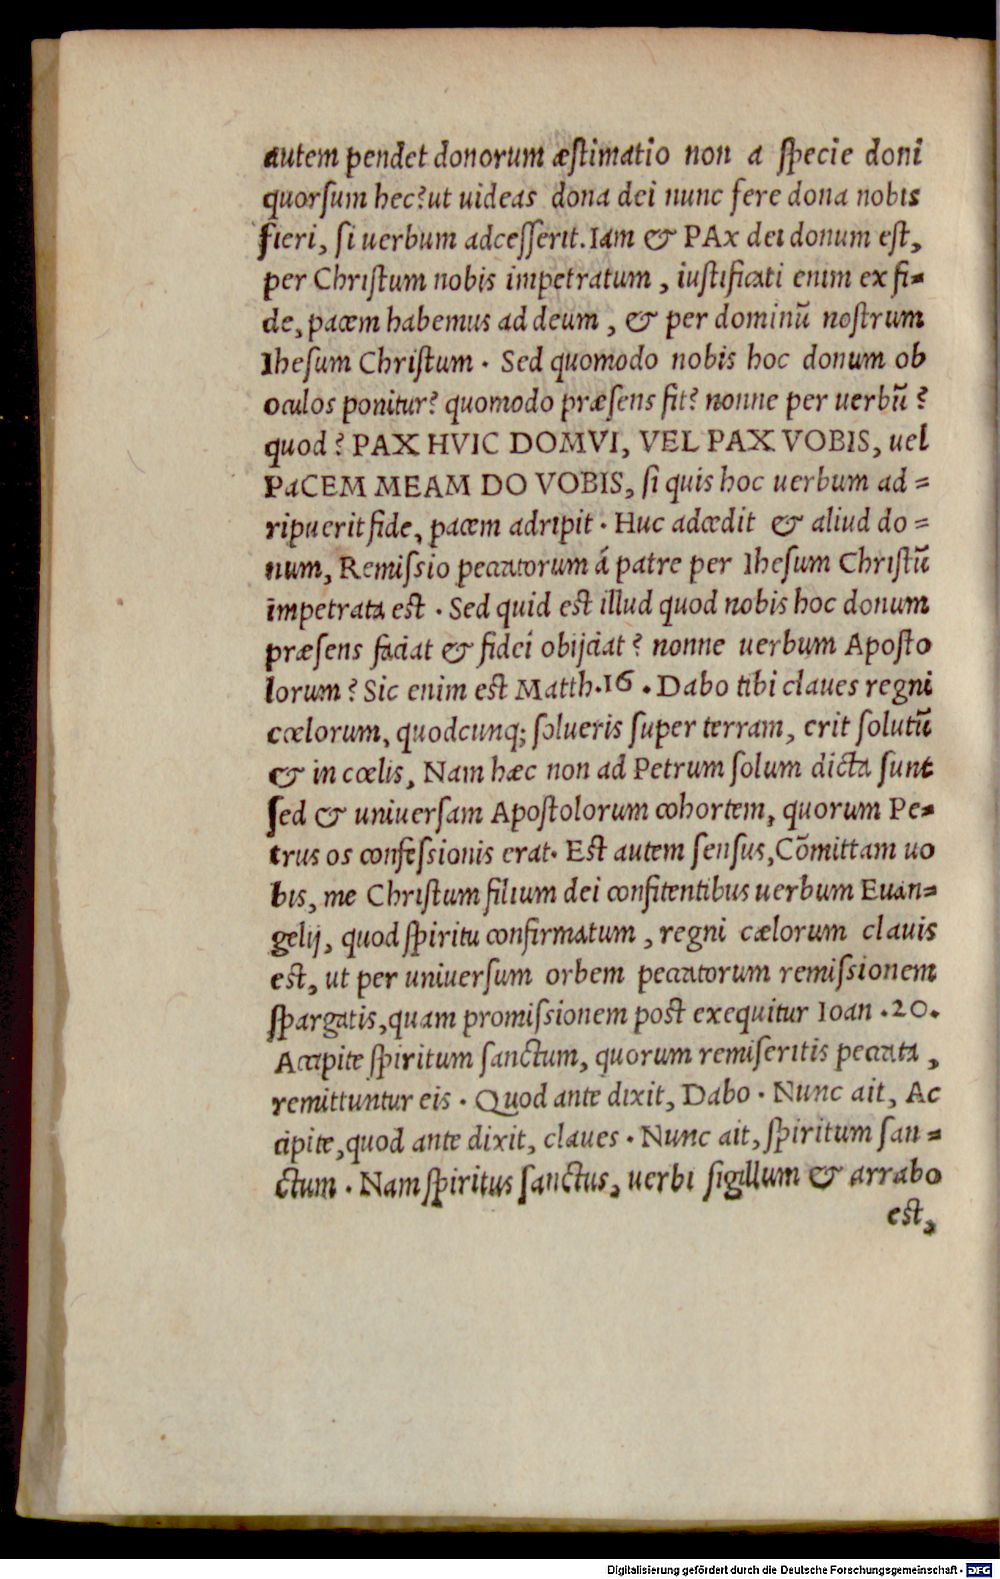 autem pendet donorum æſtimatio non a ſpecie doni
quorſum hec?ut uideas dona dei nunc fere dona nobis
fieri, ſi uerbum adceſſerit. Iam & PAx dei donum eſt,
per Chriſtum nobis impetratum, iuſtificati enim ex fi=
de, pacem habemus ad deum, & per dominũ noſtrum
Iheſum Chriſtum. Sed quomodo nobis hoc donum ob
oculos ponitur? quomodo præſens fit? nonne per uerbũ?
quod? PAX HVIC DOMVI, VEL PAX VOBIS, uel
PaCEM MEAM DO VOBIS, ſi quis hoc uerbum ad=
ripuerit fide, pacem adripit. Huc adcedit & aliud do=
num, Remiſsio peccatorum á patre per Iheſum Chriſtũ
impetrata eſt. Sed quid eſt illud quod nobis hoc donum
præſens faciat & fidei obijciat? nonne uerbum Apoſto
lorum? Sic enim eſt Matth.16. Dabo tibi claues regni
cœlorum, quodcunq; ſolueris ſuper terram, erit ſolutũ
& in cœlis, Nam hæc non ad Petrum ſolum dicta ſunt
ſed & uniuerſam Apoſtolorum cohortem, quorum Pe=
trus os confeſsionis erat. Eſt autem ſenſus, Cõmittam uo
bis, me Chriſtum filium dei confitentibus uerbum Euan=
gelij, quod ſpiritu confirmatum, regni cælorum clauis
eſt, ut per uniuerſum orbem peccatorum remiſsionem
ſpargatis, quam promiſsionem poſt exequitur Ioan.20.
Accipite ſpiritum ſanctum, quorum remiſeritis peccata,
remittuntur eis. Quod ante dixit, Dabo. Nunc ait, Ac
cipite, quod ante dixit, claues. Nunc ait, ſpiritum ſan=
ctum. Nam ſpiritus ſanctus, uerbi ſigillum & arrabo
eſt,
Digitalisierung gefördert durch die Deutsche Forschungsgemeinschaft - DFG